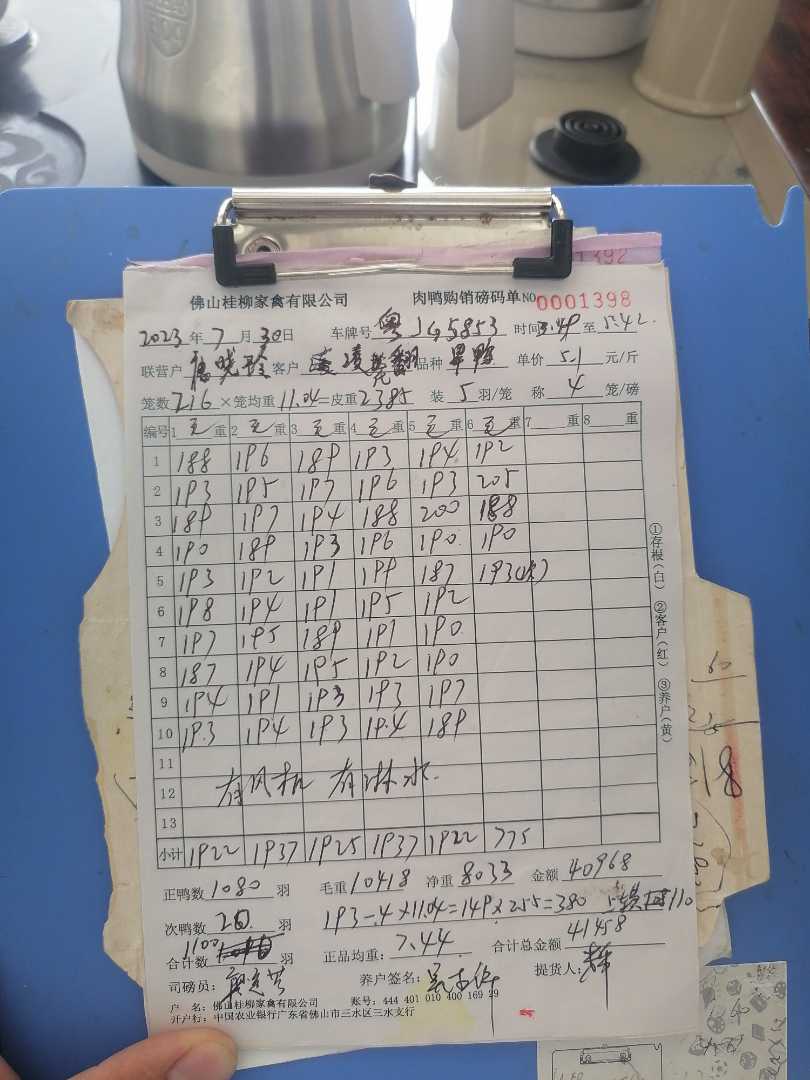 1392
佛山桂柳家禽有限公司 肉鸭购销磅码单 NO 0001398
2023年7月30日 车牌号 粤J G5853 时间 至
联营户 晓玲 客户 品种 旱鸭 单价 5.1 元/斤
笼数 216 × 笼均重 11.04 = 皮重 2385 装 5 羽/笼 称 4 笼/磅
编号 1 毛 重 2 毛 重 3 毛 重 4 毛 重 5 毛 重 6 毛 重 7 重 8 重
1 188 196 189 193 194 192
2 193 195 197 196 193 205
3 189 197 194 188 200 188
4 190 189 193 196 190 190
5 193 192 191 199 187 193(次)
6 198 194 191 195 192
7 197 195 189 191 190
8 187 194 195 192 190
9 194 191 193 193 197
10 193 194 193 194 189
11
12 有风机 有淋水
13
小计 1922 1937 1925 1937 1922 775
正鸭数 1080 羽 毛重 10418 净重 8033 金额 40968
次鸭数 20 羽 193-4×11.04=149×2.55=380 110
合计数 1100 羽 正品均重: 7.44 合计总金额 41458
司磅员: 养户签名: 提货人:
户 名: 佛山桂柳家禽有限公司 账号: 444 401 010 400 169 29
开户行: 中国农业银行广东省佛山市三水区三水支行
①存根(白) ②客户(红) ③养户(黄)